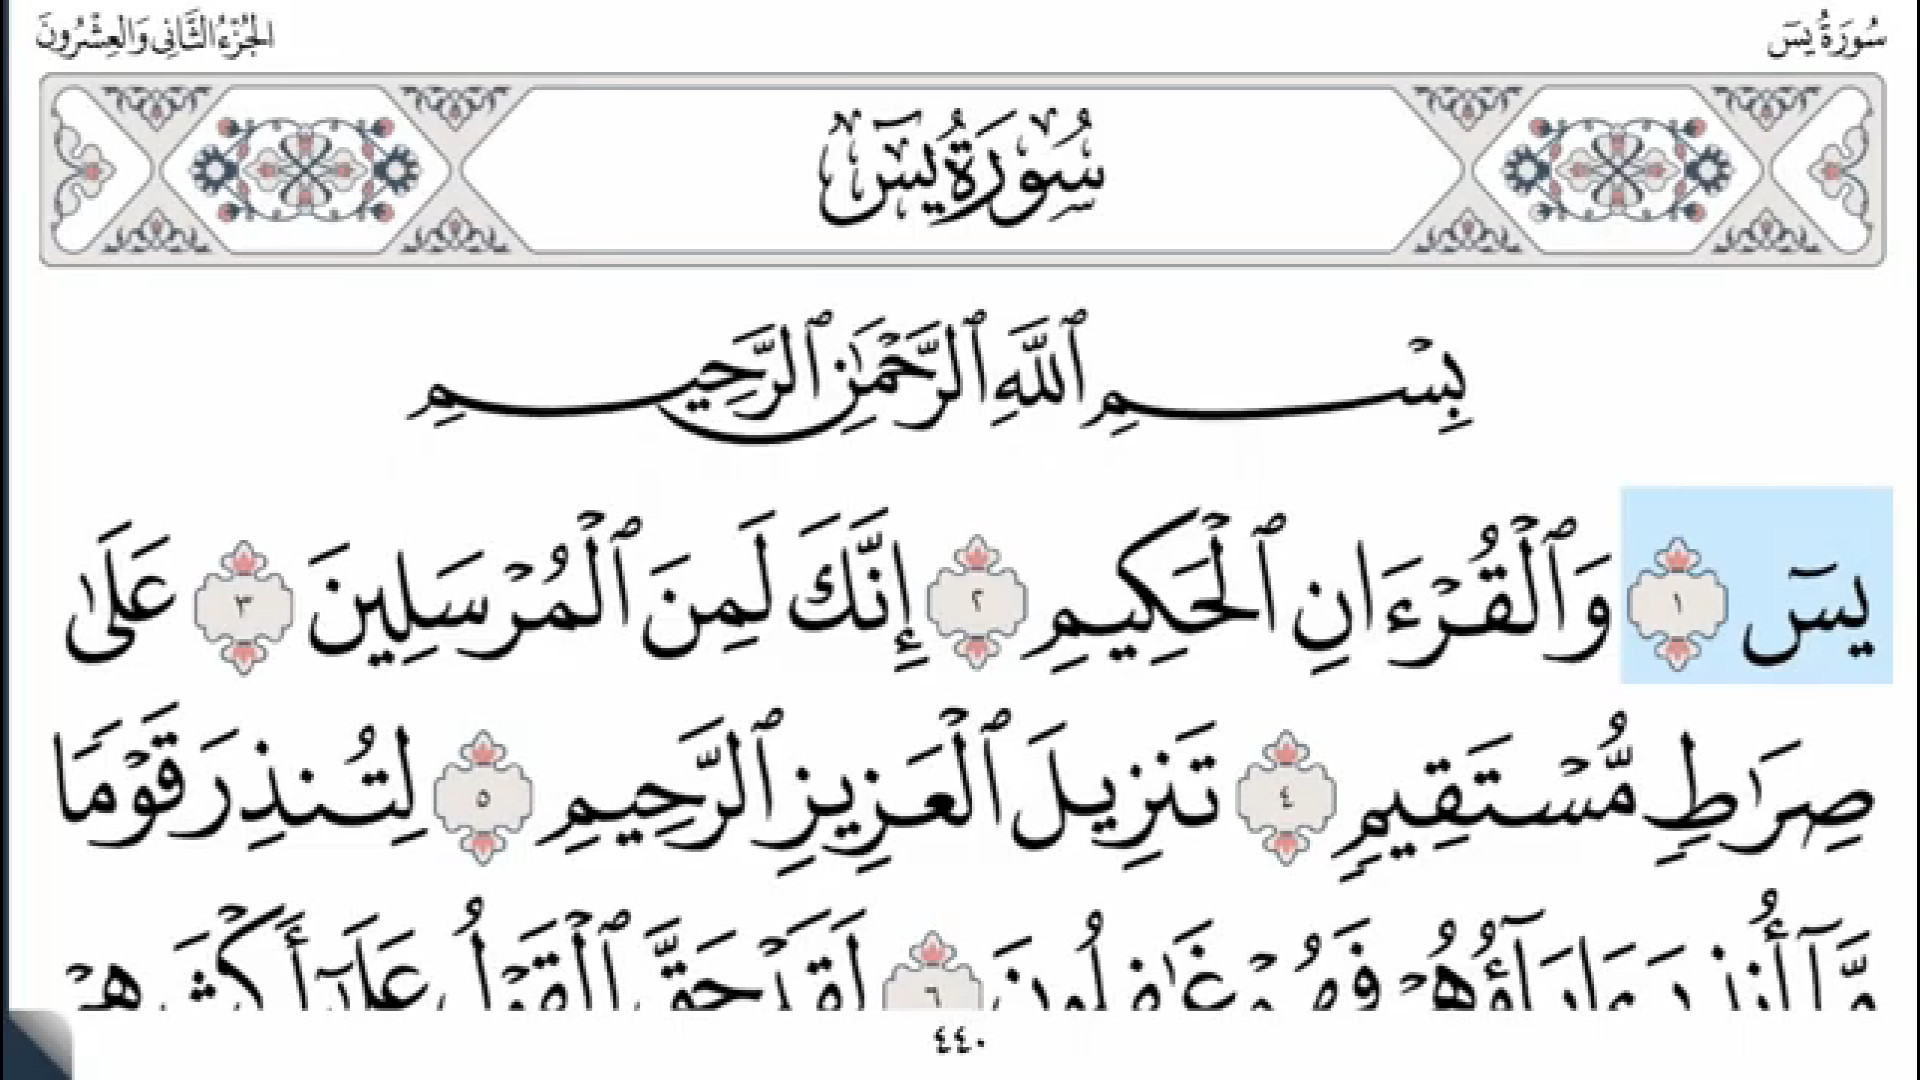 سُورَةُ يسٓ
الجُزْءُ الثَّانِي وَالعِشْرُونَ
سُورَةُ يسٓ
بِسْمِ ٱللَّهِ ٱلرَّحْمَٰنِ ٱلرَّحِيمِ
يسٓ ١ وَٱلْقُرْءَانِ ٱلْحَكِيمِ ٢ إِنَّكَ لَمِنَ ٱلْمُرْسَلِينَ ٣ عَلَىٰ
صِرَٰطٍ مُّسْتَقِيمٍ ٤ تَنزِيلَ ٱلْعَزِيزِ ٱلرَّحِيمِ ٥ لِتُنذِرَ قَوْمًا
مَّآ أُنذِرَ ءَابَآؤُهُمْ فَهُمْ غَٰفِلُونَ ٦ لَقَدْ حَقَّ ٱلْقَوْلُ عَلَىٰٓ أَكْثَرِهِمْ
٤٤٠